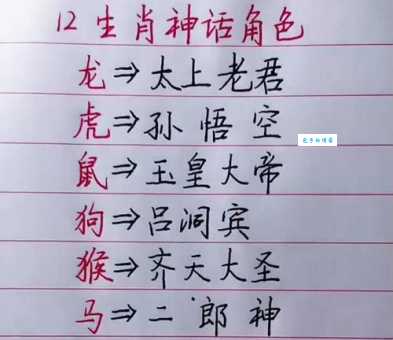 12生肖神话角色
龙⇒太上老君
虎⇒孙悟空
鼠⇒玉皇大帝
狗⇒吕洞宾
猴⇒齐天大圣
马⇒二郎神